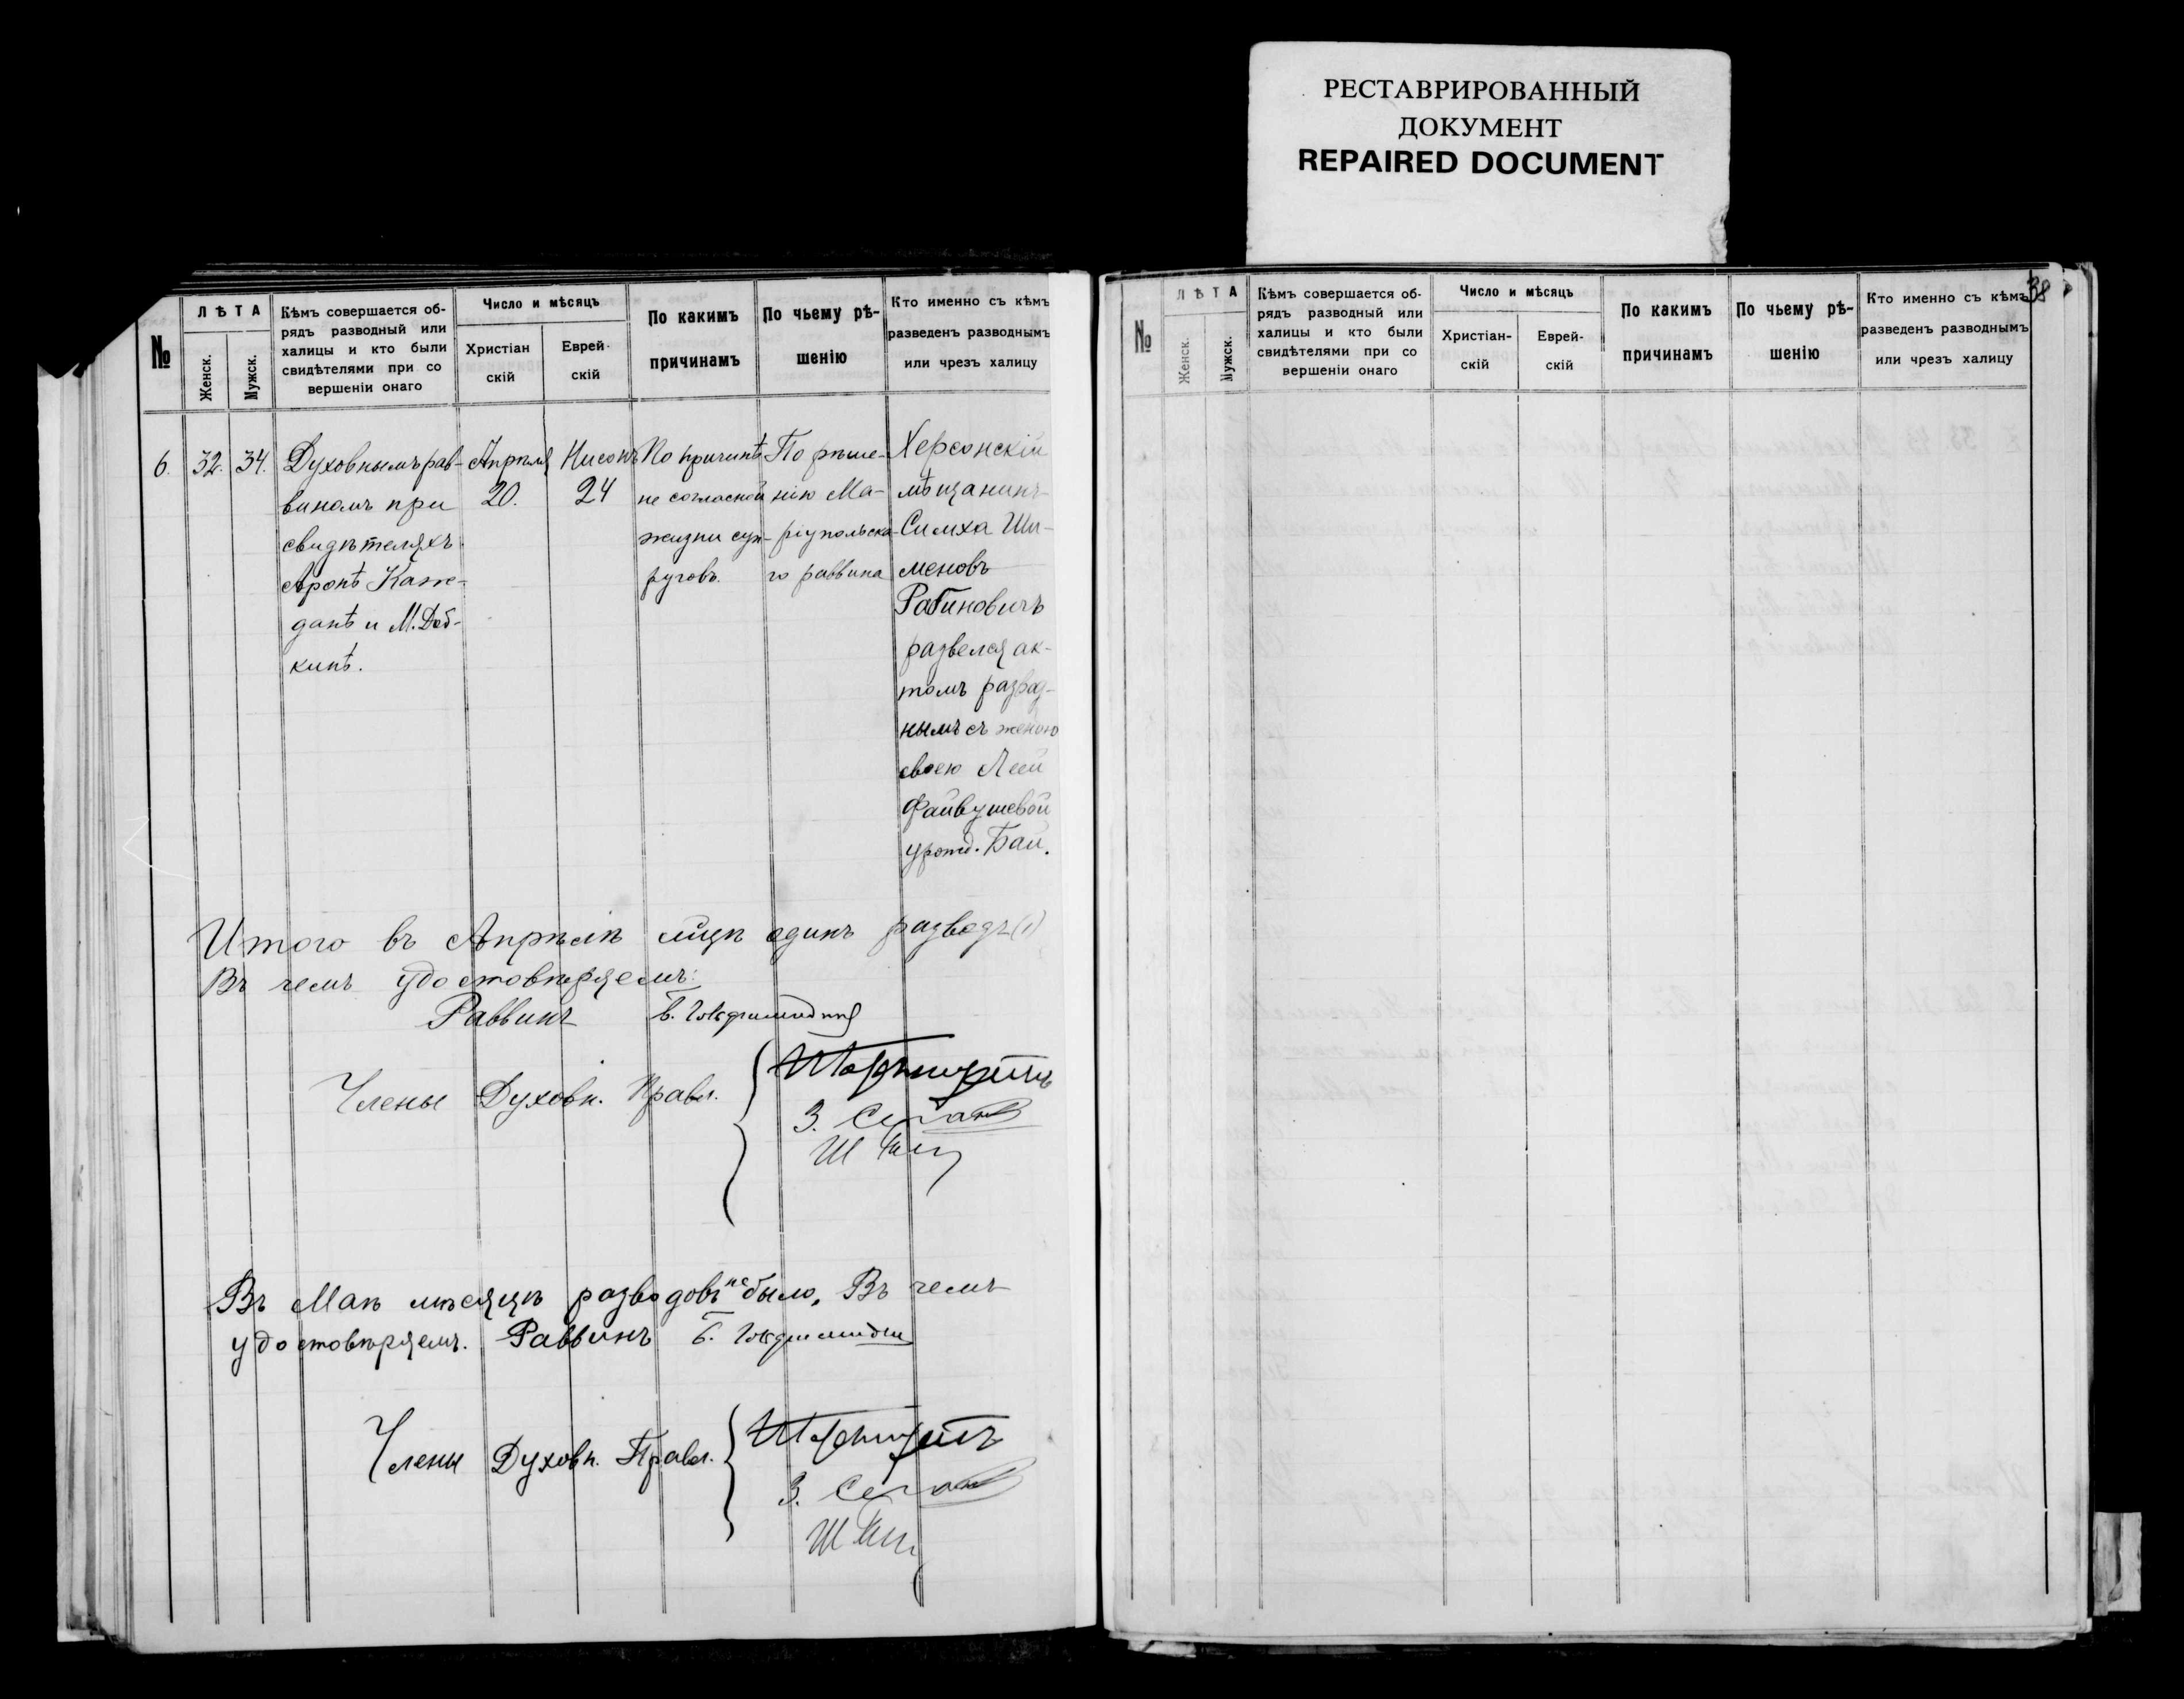 РЕСТАВРИРОВАННЫЙ
ДОКУМЕНТ
REPAIRED DOCUMENT
№
ЛѢТА
Женск.
Мужск.
Кѣмъ совершается об-
рядъ разводный или
халицы и кто были
свидѣтелями при со
вершеніи онаго
Число и мѣсяцъ
Христіан
скій
Еврей-
скій
По какимъ
причинамъ
По чьему рѣ-
шенію
Кто именно съ кѣмъ
разведенъ разводнымъ
или чрезъ халицу
6.
32.
34.
Духовнымъ рав-
виномъ при
свидѣтеляхъ
Аронѣ Каже-
данѣ и М. Доб-
кинѣ.
Апрѣля
20.
Нисонъ
24
По причинѣ
не согласной
жизни суп-
руговъ.
По рѣше-
нію Ма-
ріупольска-
го раввина
Херсонскій
мѣщанинъ
Симха Ши-
меновъ
Рабиновичъ
развелся ак-
томъ развод-
нымъ съ женою
своею Леей
Файвушевой
урожд. Бай.
Итого въ Апрѣлѣ м-цѣ одинъ разводъ (1)
Въ чемъ удостовѣряемъ:
Раввинъ
Члены Духовн. Правл.
З.
Ш
Въ Маѣ мѣсяцѣ разводовъ не было, Въ чемъ
удостовѣряемъ. Раввинъ
Члены Духовн. Правл.
З.
Ш
38
№
ЛѢТА
Женск.
Мужск.
Кѣмъ совершается об-
рядъ разводный или
халицы и кто были
свидѣтелями при со
вершеніи онаго
Число и мѣсяцъ
Христіан-
скій
Еврей-
скій
По какимъ
причинамъ
По чьему рѣ-
шенію
Кто именно съ кѣмъ
разведенъ разводнымъ
или чрезъ халицу